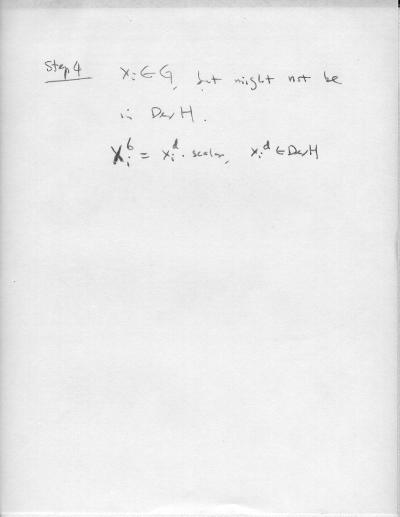 Step 4 xᵢ ∈ G, but might not be
in Der H.
xᵢ⁶ = xᵢᵈ · scalar, xᵢᵈ ∈ Der H